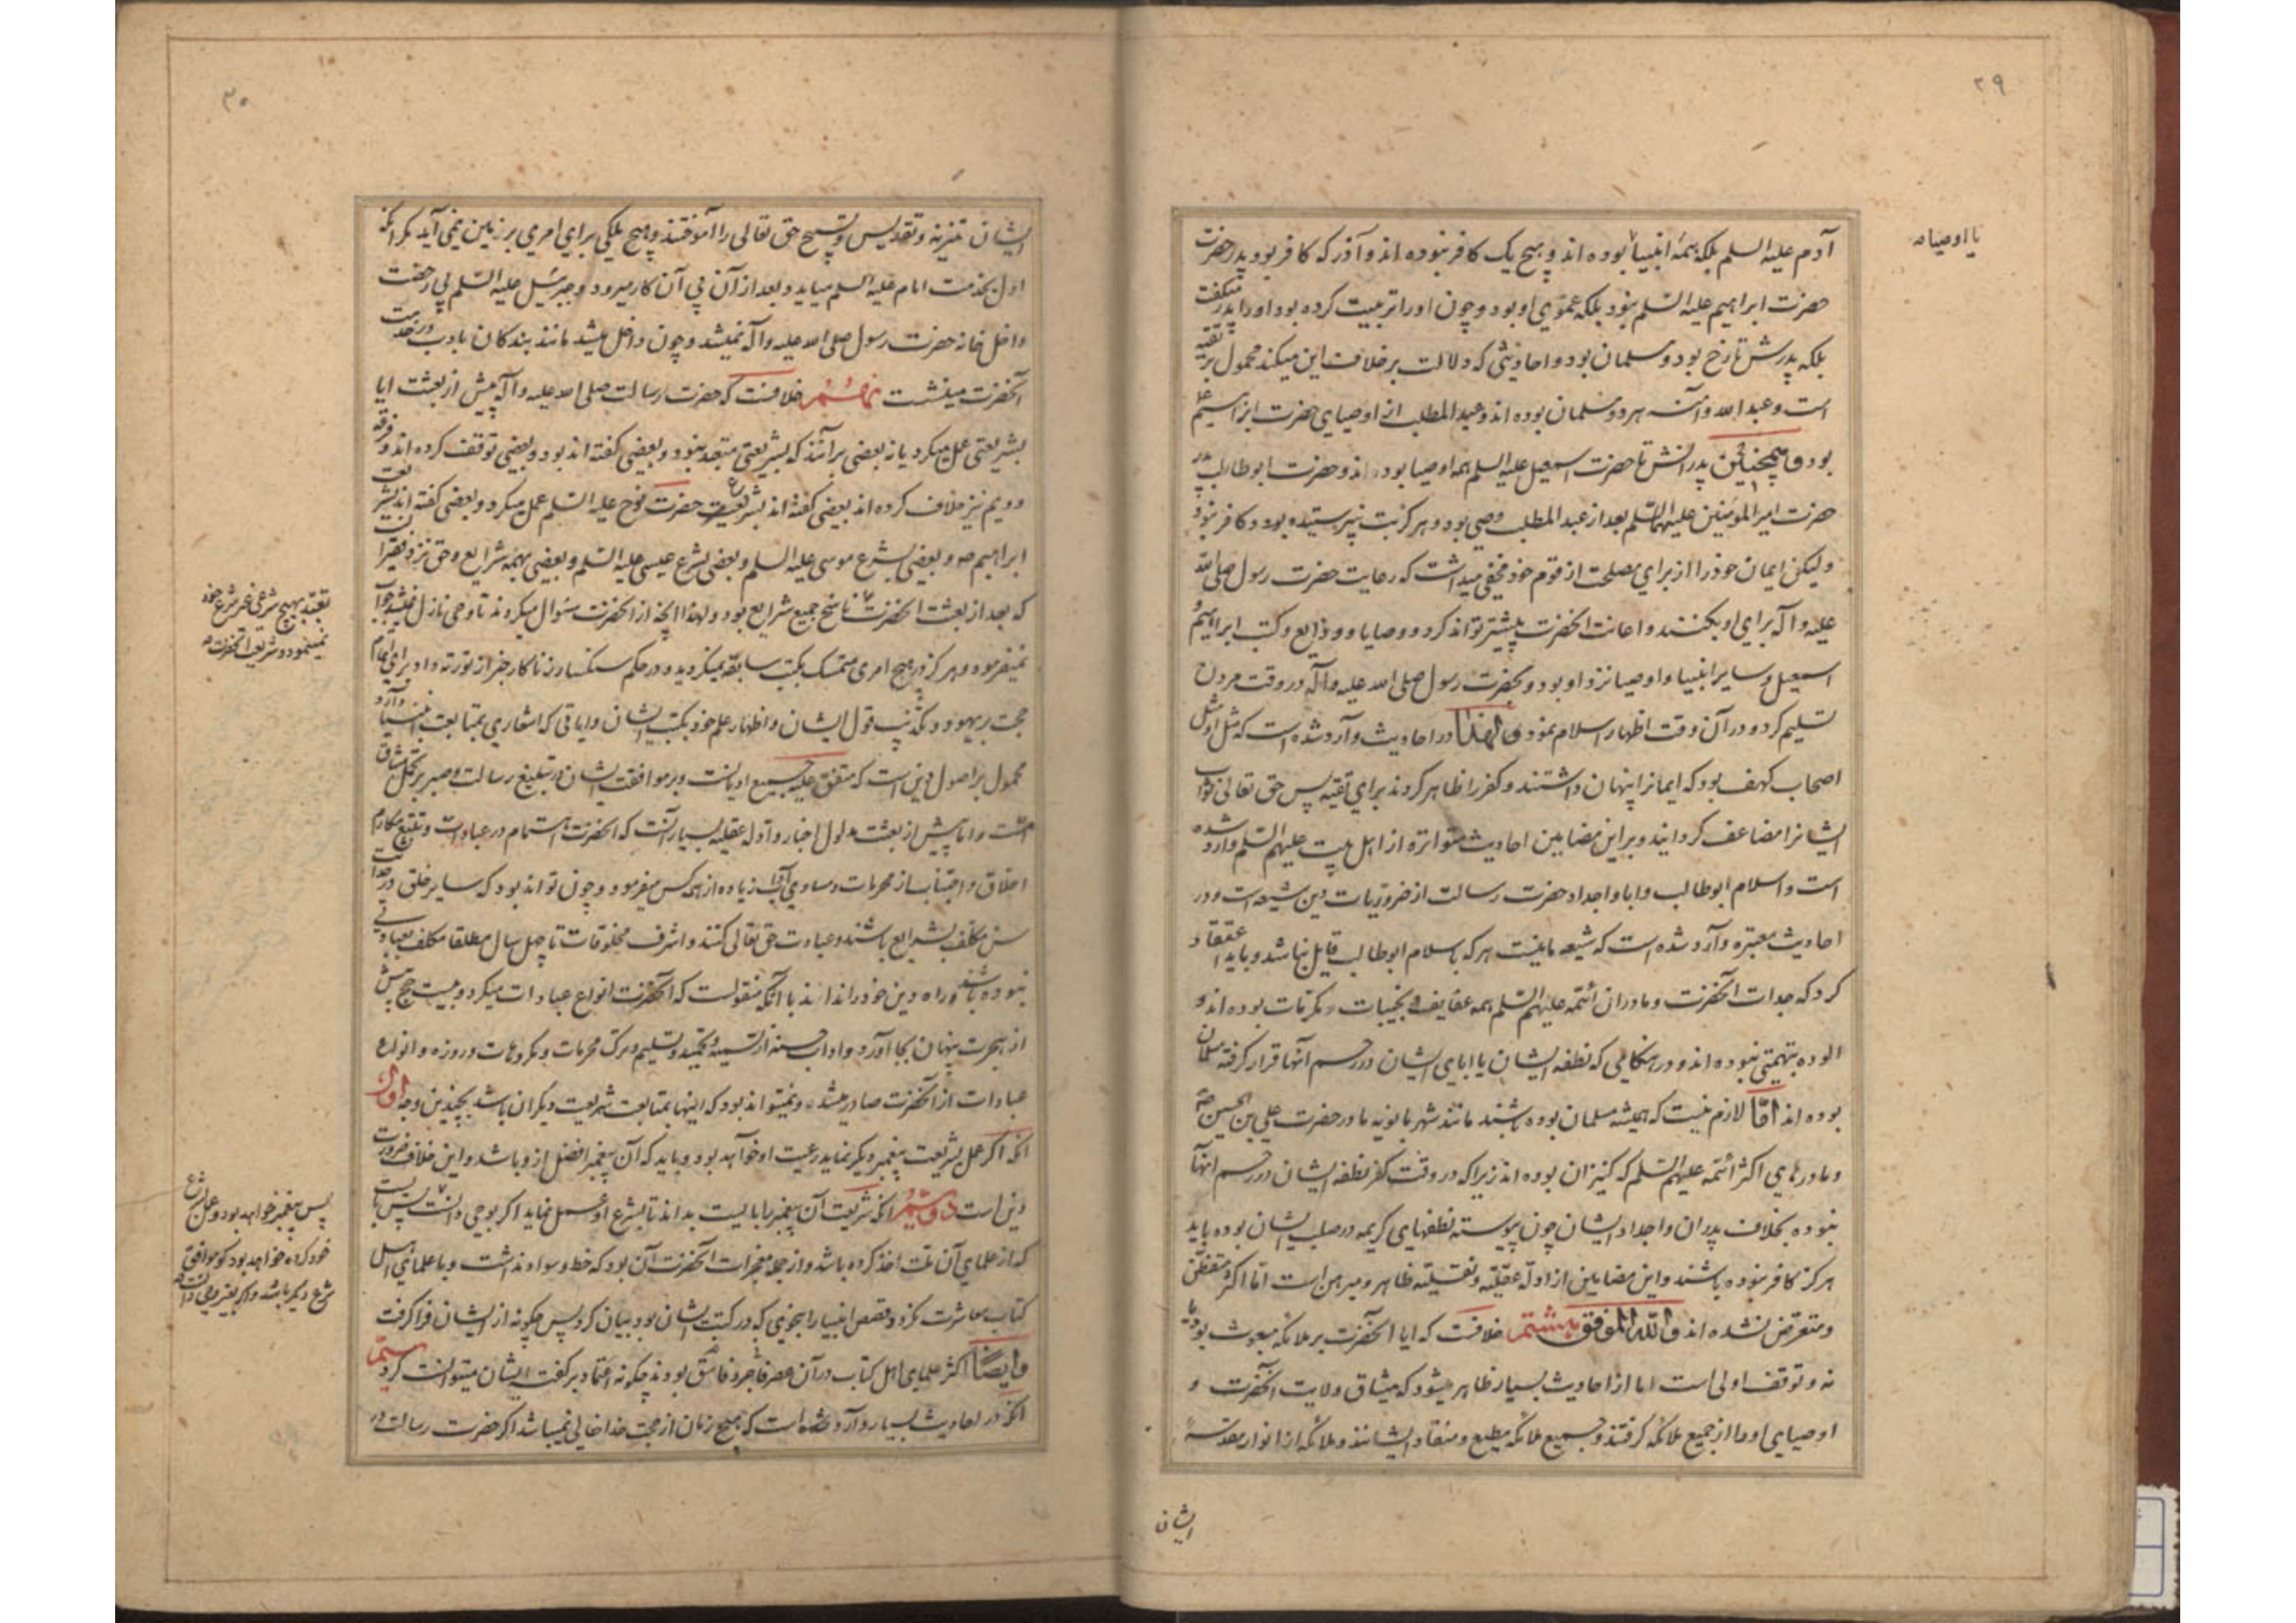 ۲۹
آدم علیه السلم بلکه همه انبیا بوده اند و هیچ یک کافر نبوده اند و آذر که کافر بود پدر حضرت
یا اوصیا صه
حضرت ابراهیم علیه السّلم نبود بلکه عموی او بود و چون او را تربیت کرده بود او را پدر میکفت
بلکه پدرش تارخ بود و مسلمان بود و احادیثی که دلالت بر خلاف این میکند محمول بر تقیه
است و عبد الله و آمنه هر دو مسلمان بوده اند و عبد المطلب از اوصیای حضرت ابراهیم ع
بود و همچنین پدرانش تا حضرت اسمعیل علیه السلم همه اوصیا بوده اند و حضرت ابو طالب پدر
حضرت امیر المؤمنین علیهما السّلم بعد از عبد المطلب وصی بود و هرکز بت نپرستیده بود و کافر نبود
ولیکن ایمان خود را از برای مصلحت از قوم خود مخفی میداشت که رعایت حضرت رسول صلی الله
علیه و آله برای او بکنند و اعانت انحضرت بیشتر تواند کرد و وصایا و ودایع و کتب ابراهیم و
اسمعیل و سایر انبیا و اوصیا نزد او بود و بحضرت رسول صلی الله علیه و آله در وقت مردن
تسلیم کرد و در آن وقت اظهار اسلام نمود و لهذا در احادیث وارد شده است که مثل او مثل
اصحاب کهف بود که ایمانرا پنهان داشتند و کفر را ظاهر کردند برای تقیه پس حق تعالی ثواب
ایشانرا مضاعف کردانید و بر این مضامین احادیث متواتره از اهل بیت علیهم السّلم وارد شده
است و اسلام ابو طالب و ابا و اجداد حضرت رسالت از ضروریات دین شیعه است و در
احادیث معتبره وارد شده است که شیعه ما نیست هر که باسلام ابو طالب قایل نباشد و باید اعتقاد
کرد که جدات انحضرت و مادران ائمّه علیهم السّلم همه عفایف و نجیبات و مکرمات بوده اند و
الوده بتهمتی نبوده اند و در هنکامی که نطفه ایشان یا ابای ایشان در رحم آنها قرار کرفته مسلمان
بوده اند امّا لازم نیست که همیشه مسلمان بوده باشند مانند شهر بانویه مادر حضرت علی بن الحسین صه
و مادرهای اکثر ائمّه علیهم السّلم که کنیزان بوده اند زیرا که در وقت کفر نطفه ایشان در رحم انها
نبوده بخلاف پدران و اجداد ایشان چون پیوسته نطفهای کریمه در صلب ایشان بوده باید
هرکز کافر نبوده باشند و این مضامین از ادله عقلیّه و نقلیّه ظاهر و مبرهن است امّا اکثر متفطّن
و متعرض نشده اند و الله الموفق هشتم خلافست که ایا انحضرت بر ملائکه مبعوث بود یا
نه و توقف اولی است اما از احادیث بسیار ظاهر میشود که میثاق ولایت انحضرت و
اوصیای او را از جمیع ملائکه کرفتند و جمیع ملائکه مطیع و منقاد ایشانند و ملائکه از انوار مقدسه
ایشان
۳۰
ایشان تنزیه و تقدیس و تسبیح حق تعالی را آموختند و هیچ ملکی برای امری بر زمین نمی آید مکر انکه
اول بخدمت امام علیه السلم میاید و بعد از آن پی آن کار میرود و جبرئیل علیه السّلم بی رخصت
داخل خانه حضرت رسول صلی الله علیه و آله نمیشد و چون داخل میشد مانند بندکان بادب در خدمت
آنحضرت مینشست نهم خلافست که حضرت رسالت صلی الله علیه و آله پیش از بعثت ایا
بشریعتی عمل میکرد یا نه بعضی برآنند که بشریعتی متعبد نبود و بعضی کفته اند بود و بعضی توقف کرده اند و فرقه
دویم نیز خلاف کرده اند بعضی کفته اند بشریعت حضرت نوح علیه السّلم عمل میکرد و بعضی کفته اند بشریعت
ابراهیم صه و بعضی بشرع موسی علیه السلم و بعضی بشرع عیسی علیه السّلم و بعضی بهمه شرایع و حق نزد فقیر آنست
که بعد از بعثت انحضرت ناسخ جمیع شرایع بود و لهذا انچه از انحضرت سؤال میکردند تا وحی نازل نمیشد جواب
تعبّد بهیچ شرعی غیر شرع خود
نمینمود و شریعت انحضرت صه
نمیفرمود و هرکز در هیچ امری متمسک بکتب سابقه نمیکردید و در حکم سنکسار زناکار خبر از تورته داد برای اتمام
حجت بر یهود و تکذیب قول ایشان و اظهار علم خود بکتب ایشان و ایاتی که اشعاری بمتابعت انبیا دارد
محمول بر اصول دین است که متفق علیه جمیع ادیانست و بر موافقت ایشان در تبلیغ رسالت و صبر بر تحمل مشاق
امّت و اما پیش از بعثت مدلول اخبار و ادله عقلیه بسیار آنست که انحضرت اهتمام در عبادات و تتبع مکارم
اخلاق و اجتناب از محرمات و مساوی آداب زیاده از همه کس میفرمود و چون تواند بود که سایر خلق در حداثت
سن مکلف بشرایع باشند و عبادت حق تعالی کنند و اشرف مخلوقات تا چهل سال مطلقا مکلف بعبادتی
نبوده باشد و راه دین خود را نداند با انکه منقولست که انحضرت انواع عبادات میکرد و بیست حج پیش
از هجرت پنهان بجا آورد و اداب حسنه از تسمیه و تحمید و تسلیم و ترک محرمات و مکروهات و روزه و انواع
عبادات از انحضرت صادر میشد و نمیتواند بود که اینها بمتابعت شریعت دیکران باشد بچندین وجه اول
انکه اکر عمل بشریعت پیغمبر دیکر نماید رعیت او خواهد بود و باید که آن پیغمبر افضل از او باشد و این خلاف ضرورت
دین است دویم انکه شریعت آن پیغمبر را بایست بداند تا بشرع او عمل نماید اکر بوحی دانست پس بایست
پس پیغمبر خواهد بود و عمل بشرع
خود کرده خواهد بود کو موافق
شرع دیکر باشد و اکر بغیر وحی دانست صه
که از علمای آن ملت اخذ کرده باشد و از جمله معجزات انحضرت آن بود که خط و سواد نداشت و با علمای اهل
کتاب معاشرت نکرد و قصص انبیا را بنحوی که در کتب ایشان بود بیان کرد پس چکونه از ایشان فرا کرفت
و ایضًا اکثر علمای اهل کتاب در آن عصر فاجر و فاسق بودند چکونه اعتماد بر کفته ایشان میتوانست کرد سیّم
انکه در احادیث بسیار وارد شده است که هیچ زمان از حجت خدا خالی نمیباشد اکر حضرت رسالت در